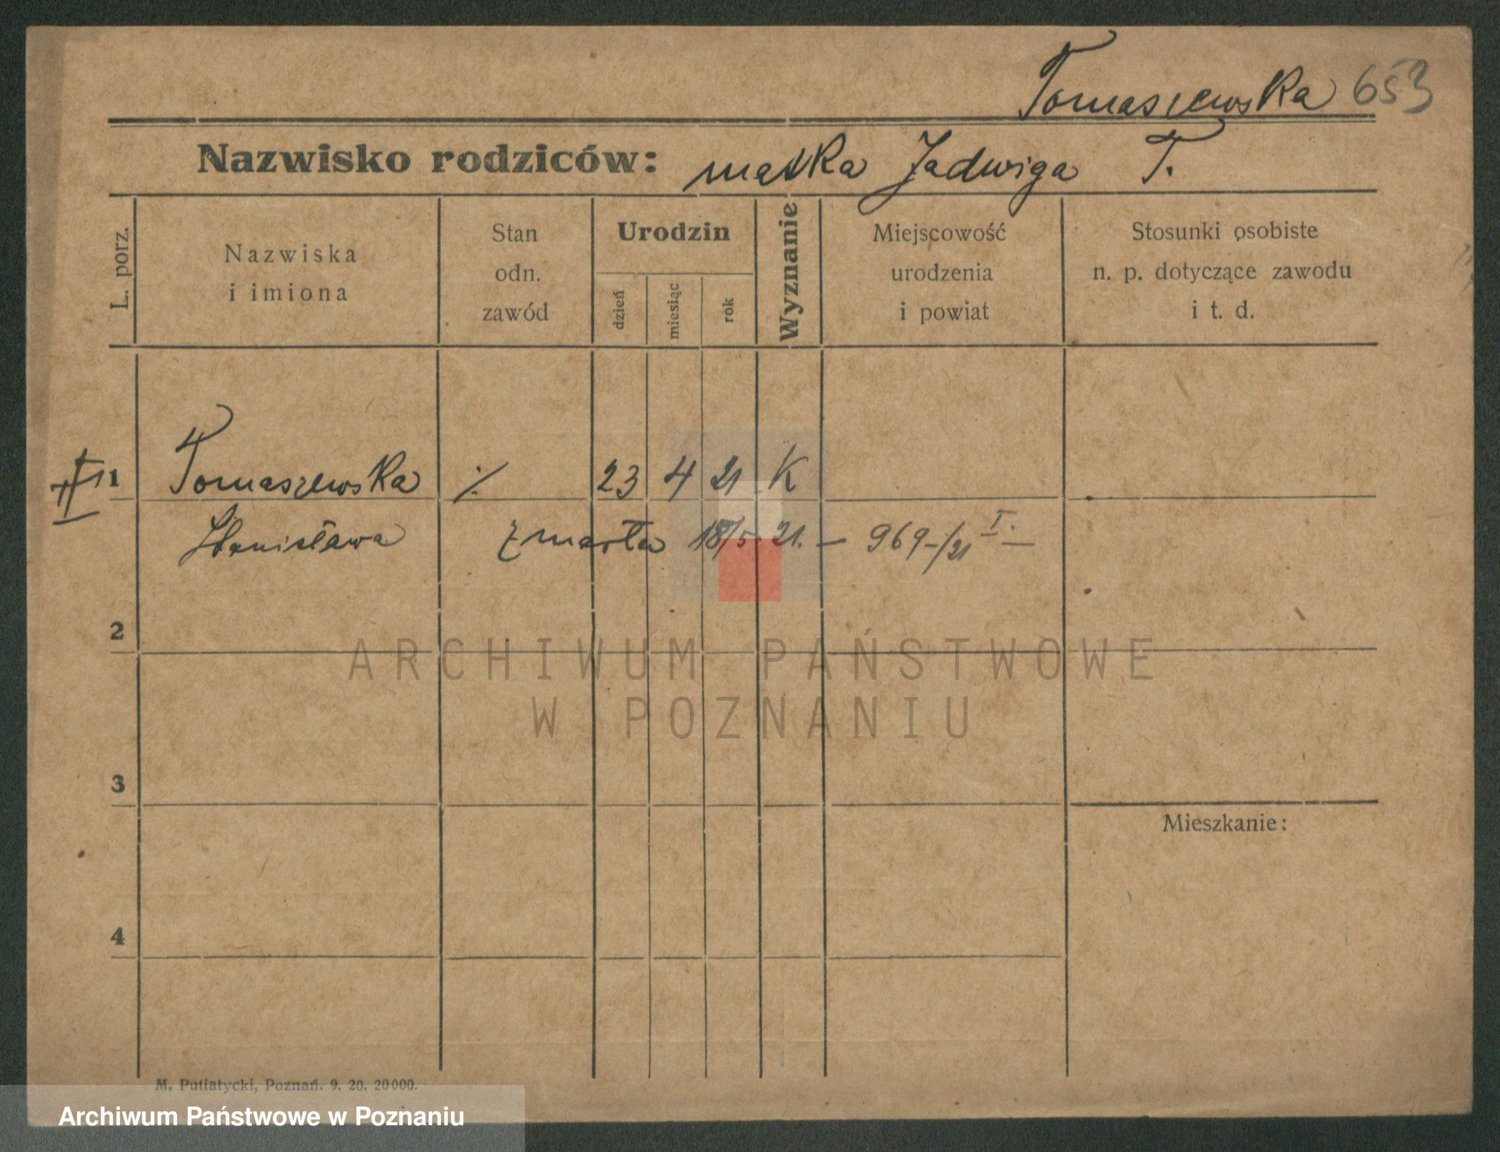 Tomaszewska 653
Nazwisko rodziców: matka Jadwiga T.
L. porz.
Nazwiska
i imiona
Stan
odn.
zawód
Urodzin
dzień
miesiąc
rok
Wyznanie
Miejscowość
urodzenia
i powiat
Stosunki osobiste
n. p. dotyczące zawodu
i t. d.
1 Tomaszewska ·/. 23 4 21 K
Stanisława zmarła 18/5 21. – 969–/21 I. –
2
ARCHIWUM PAŃSTWOWE
W POZNANIU
3
Mieszkanie:
4
M. Putiatycki, Poznań. 9. 20. 20000.
Archiwum Państwowe w Poznaniu